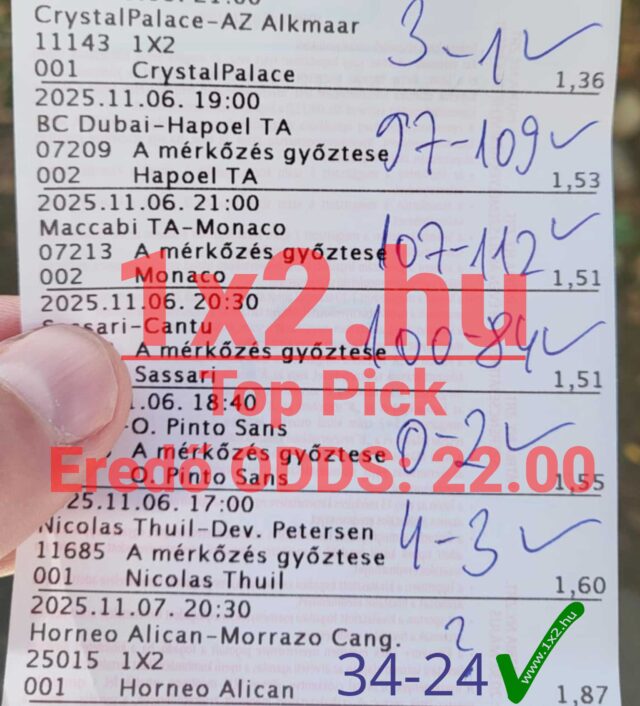 CrystalPalace-AZ Alkmaar
11143 1X2 3-1
001 CrystalPalace 1,36
2025.11.06. 19:00
BC Dubai-Hapoel TA
07209 A mérkőzés győztese 97-109
002 Hapoel TA 1,53
2025.11.06. 21:00
Maccabi TA-Monaco
07213 A mérkőzés győztese 107-112
002 Monaco 1,51
1x2.hu
2025.11.06. 20:30
Sassari-Cantu
A mérkőzés győztese 100-84
Sassari 1,51
Top Pick
.06. 18:40
-O. Pinto Sans
A mérkőzés győztese 0-2
O. Pinto Sans 1,55
Eredő ODDS: 22.00
25.11.06. 17:00
Nicolas Thuil-Dev. Petersen
11685 A mérkőzés győztese 4-3
001 Nicolas Thuil 1,60
2025.11.07. 20:30
Horneo Alican-Morrazo Cang. ?
25015 1X2 34-24
www.1x2.hu
001 Horneo Alican 1,87